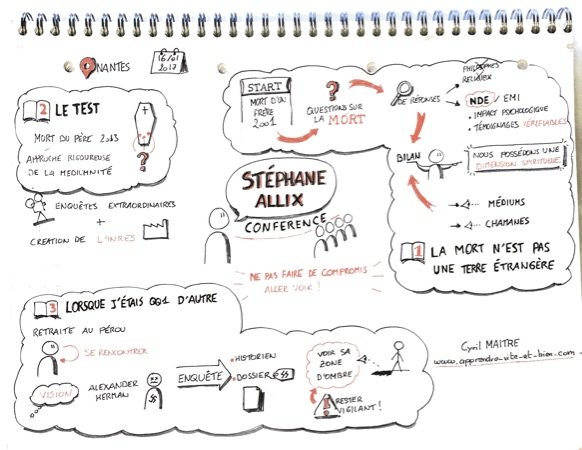 NANTES
16/01
2017
2 LE TEST
MORT DU PÈRE 2013
APPROCHE RIGOUREUSE
DE LA MEDIUMNITÉ
?
ENQUÊTES EXTRAORDINAIRES
+
CREATION DE L'INREES
START
MORT D'UN
FRÈRE
2001
?
QUESTIONS SUR
LA MORT
DE RÉPONSES
PHILOSOPHES
RELIGIEUX
NDE / EMI
• IMPACT PSYCHOLOGIQUE
• TÉMOIGNAGES VÉRIFIABLES
BILAN
NOUS POSSÉDONS UNE
DIMENSION SPIRITUELLE
MÉDIUMS
CHAMANES
1 LA MORT N'EST PAS
UNE TERRE ÉTRANGÈRE
STÉPHANE
ALLIX
CONFERENCE
NE PAS FAIRE DE COMPROMIS
ALLER VOIR !
3 LORSQUE J'ÉTAIS QQ1 D'AUTRE
RETRAITE AU PÉROU
SE RENCONTRER
VISION
ALEXANDER
HERMAN
ENQUÊTE
• HISTORIEN
• DOSSIER
VOIR SA
ZONE
D'OMBRE
! RESTER
VIGILANT !
Cyril MAITRE
www.apprendre-vite-et-bien.com